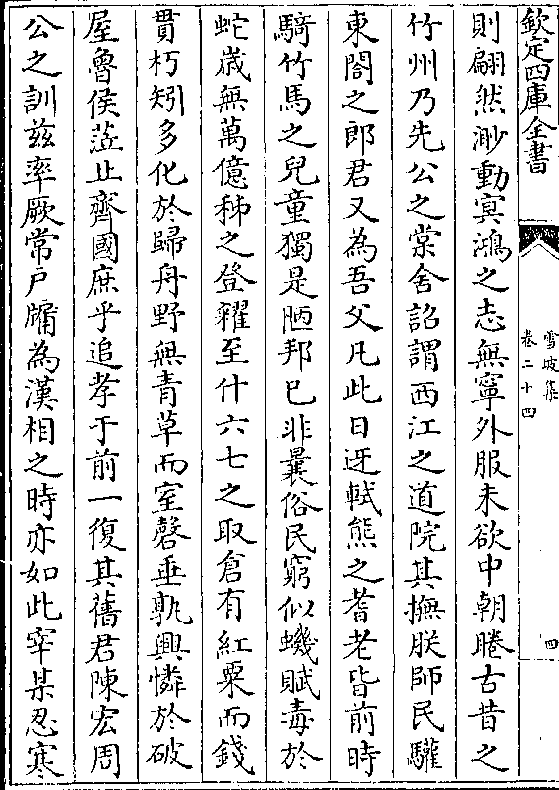 欽定四庫全書
雪坡集
卷二十四
四
則翩然渺動㝠鴻之志無寧外服未欲中朝睠古昔之
竹州乃先公之棠舍詔謂西江之道院其撫朕師民驩
東閤之郎君又為吾父凡此日迓軾熊之耆老皆前時
騎竹馬之兒童獨是陋邦已非曩俗民窮似蟣賦毒於
蛇歲無萬億秭之登糴至什六七之取倉有紅粟而錢
貫朽矧多化於歸舟野無青草而室罄垂孰興憐於破
屋魯侯蒞止齊國庶乎追孝于前一復其舊君陳宏周
公之訓兹率厥常戶牖為漢相之時亦如此宰某忍寒